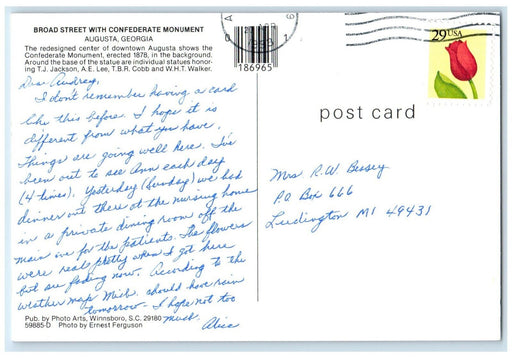 BROAD STREET WITH CONFEDERATE MONUMENT
AUGUSTA, GEORGIA
The redesigned center of downtown Augusta shows the
Confederate Monument, erected 1878, in the background.
Around the base of the statue are individual statues honor-
ing T.J. Jackson, A.E. Lee, T.B.R. Cobb and W.H.T. Walker.
Dear Audrey,
I don't remember having a card
like this before. I hope it is
different from what you have.
Things are going well here. I've
been out to see Ann each day
(4 times). Yesterday (Sunday) we had
dinner out there at the nursing home
in a private dining room off the
main one for the patients. The flowers
were real pretty when I got here
but are fading now. According to the
weather map Mich. should have rain
tomorrow - I hope not too
much.
Alice
Pub. by Photo Arts, Winnsboro, S.C. 29180
59885-D Photo by Ernest Ferguson
186965
29 USA
post card
Mrs R.W. Bessey
PO Box 666
Ludington MI 49431